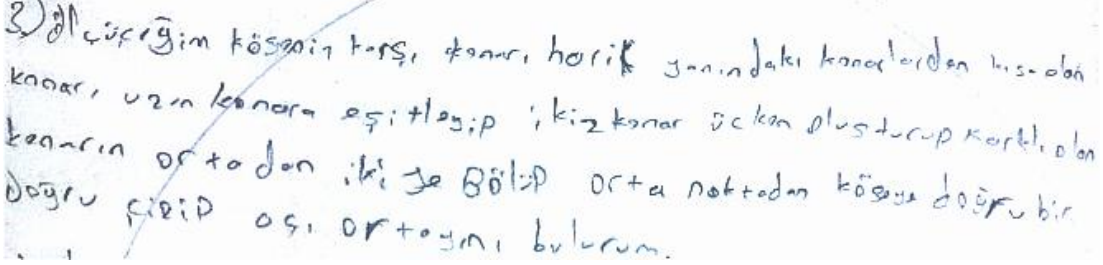 3) ölçüceğim köşenin karşı kenarı hariç yanındaki kenarlardan kısa olan
kenarı uzun kenara eşitleyip ikizkenar üçken oluşturup farklı olan
kenarın ortadan iki ye Bölüp orta noktadan köşeye doğru bir
Doğru çizip açı ortayını bulurum.